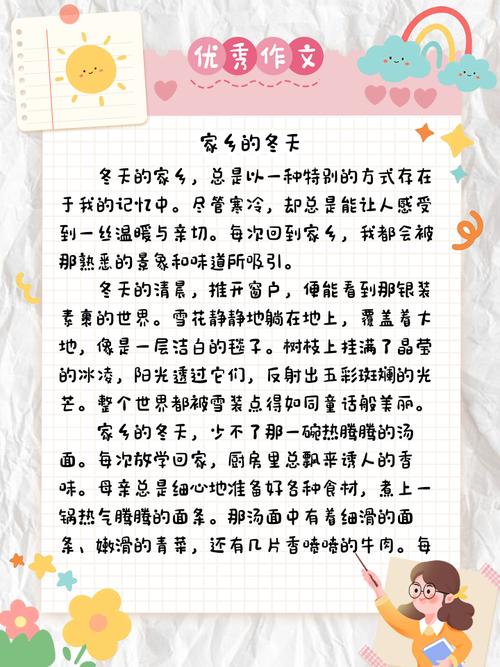 优秀作文
家乡的冬天
冬天的家乡，总是以一种特别的方式存在
于我的记忆中。尽管寒冷，却总是能让人感受
到一丝温暖与亲切。每次回到家乡，我都会被
那熟悉的景象和味道所吸引。
冬天的清晨，推开窗户，便能看到那银装
素裹的世界。雪花静静地躺在地上，覆盖着大
地，像是一层洁白的毯子。树枝上挂满了晶莹
的冰凌，阳光透过它们，反射出五彩斑斓的光
芒。整个世界都被雪装点得如同童话般美丽。
家乡的冬天，少不了那一碗热腾腾的汤
面。每次放学回家，厨房里总飘来诱人的香
味。母亲总是细心地准备好各种食材，煮上一
锅热气腾腾的面条。那汤面中有着细滑的面
条、嫩滑的青菜，还有几片香喷喷的牛肉。每